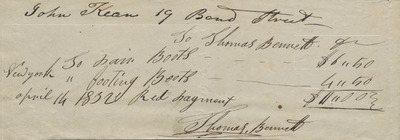 John Kean 19 Bond Street
To Thomas Bennett Dr
To pair Boots — $6.50
New york " footing Boots — 4.50
april 14 1832 Red payment $11.00
Thomas, Bennett